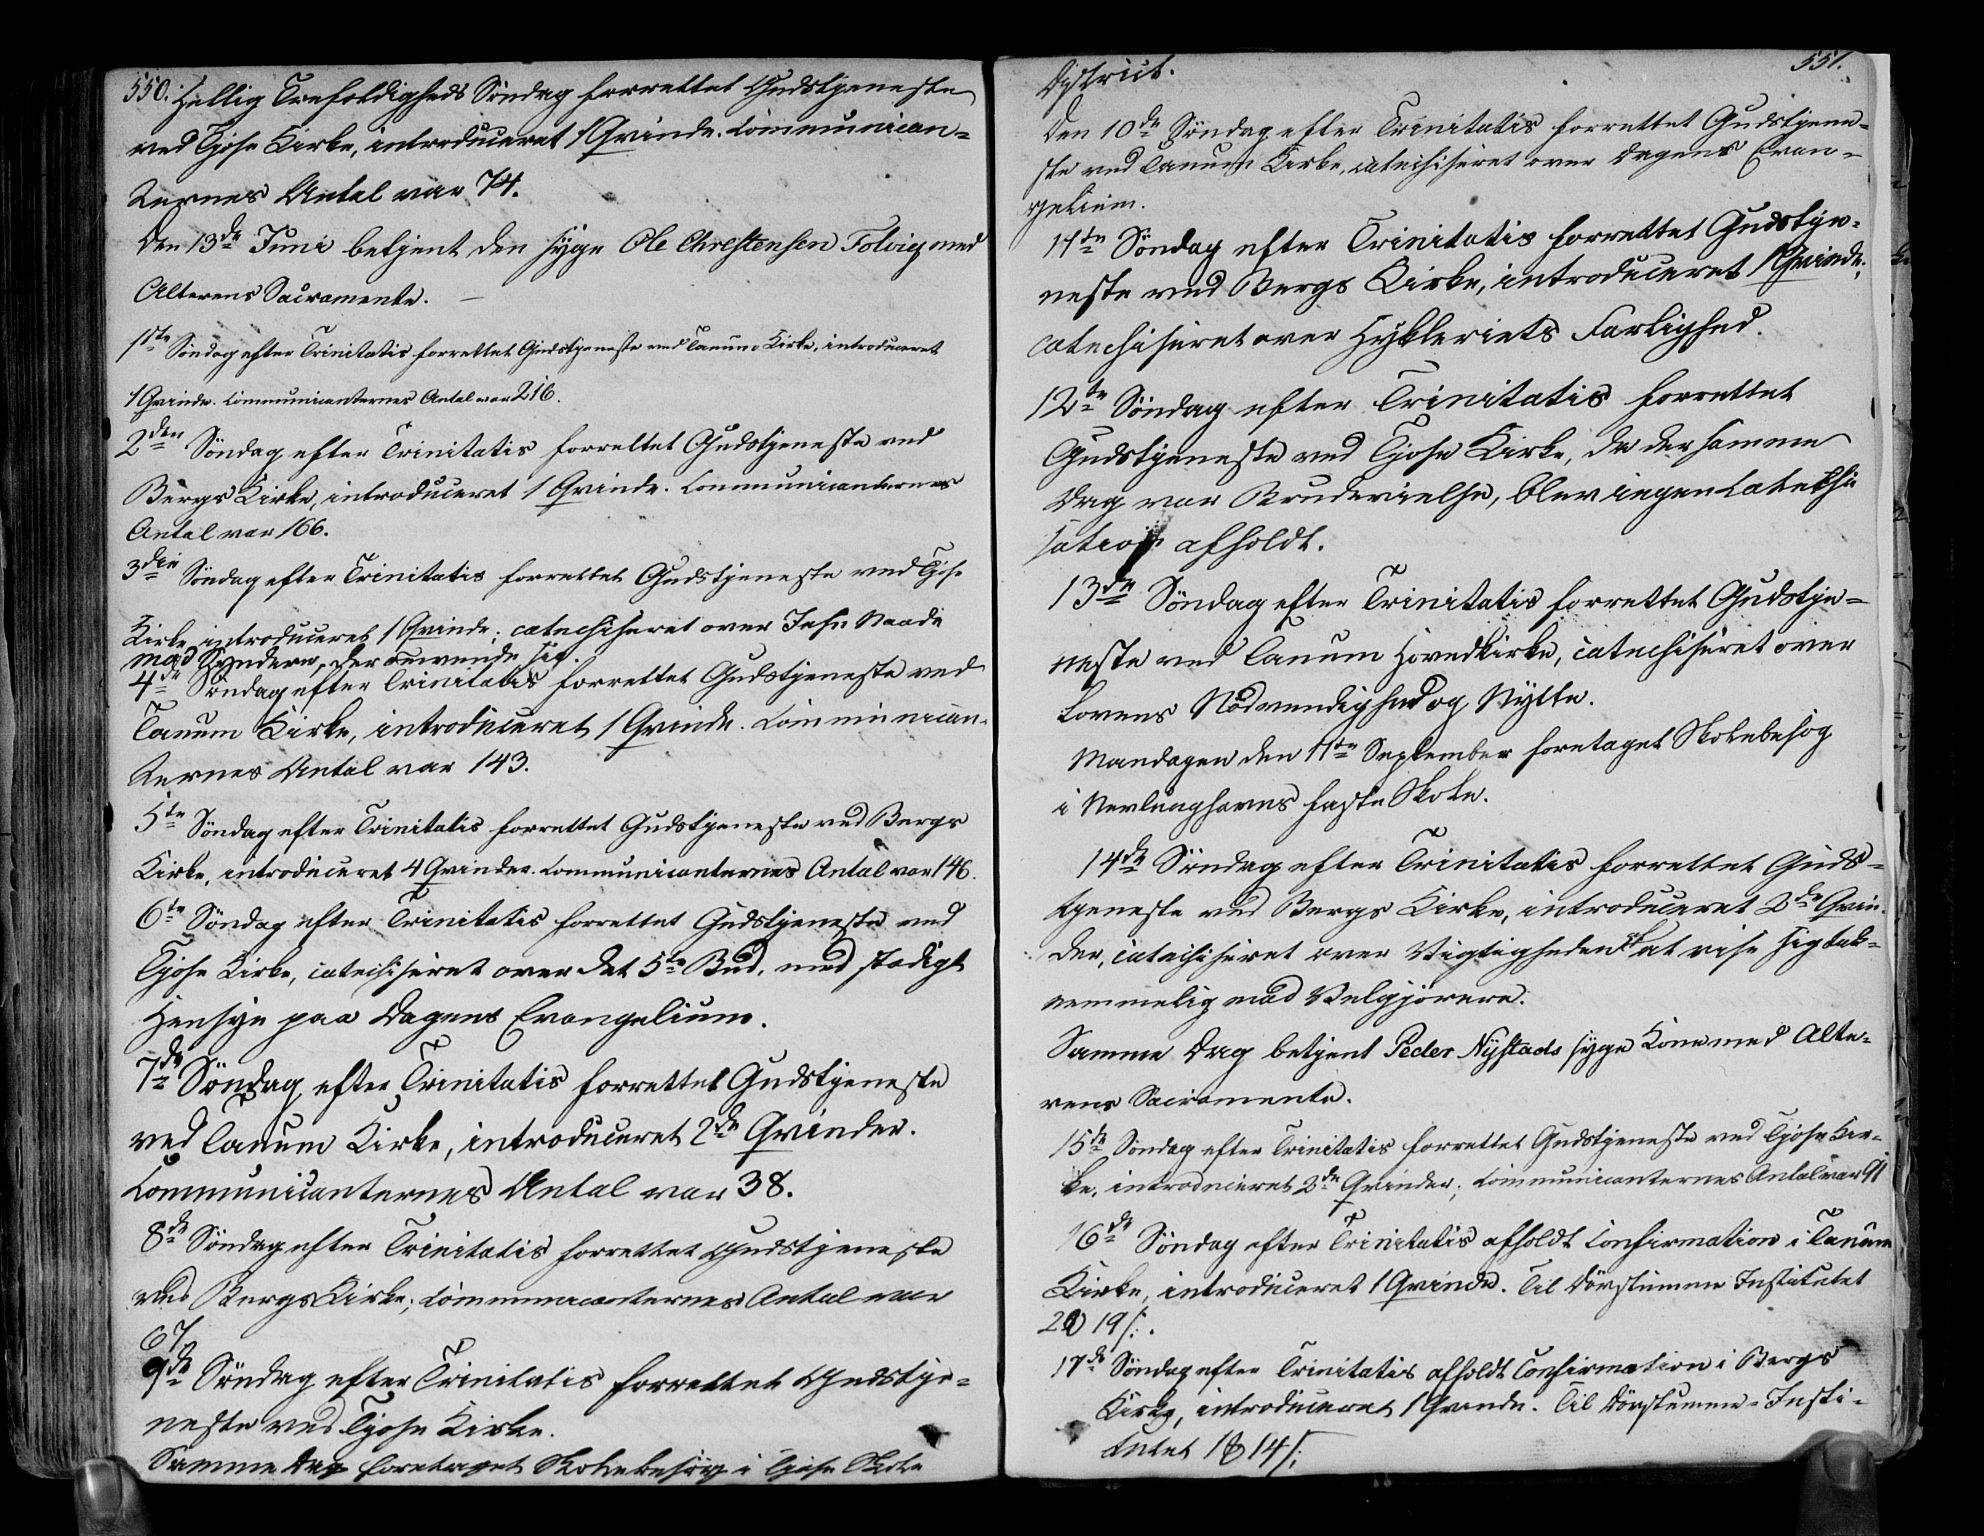 550. Hellig Trefoldigheds Søndag forrettet Gudstjeneste
ved Tjose Kirke, introduceret 1 Qvinde. Communican-
ternes Antal var 74.
Den 13de Juni betjent den syge Ole Chrestensen Tolvig med
Alterens Sacramente. —
1ste Søndag efter Trinitatis forrettet Gudstjeneste ved Tanum Kirke, introduceret
1 Qvinde. Communicanternes Antal var 216.
2den Søndag efter Trinitatis forrettet Gudstjeneste ved
Bergs Kirke, introduceret 1 Qvinde. Communicanternes
Antal var 166.
3die Søndag efter Trinitatis forrettet Gudstjeneste ved Tjose
Kirke, introduceret 1 Qvinde; catechiseret over Jesu Naade
mod Syndere, der omvende sig.
4de Søndag efter Trinitatis forrettet Gudstjeneste ved
Tanum Kirke, introduceret 1 Qvinde. Communican-
ternes Antal var 143.
5te Søndag efter Trinitatis forrettet Gudstjeneste ved Bergs
Kirke, introduceret 4 Qvinder. Communicanternes Antal var 146.
6te Søndag efter Trinitatis forrettet Gudstjeneste ved
Tjose Kirke, catechiseret over det 5te Bud, med stadigt
Hensyn paa Dagens Evangelium.
7de Søndag efter Trinitatis forrettet Gudstjeneste
ved Tanum Kirke, introduceret 2de Qvinder.
Communicanternes Antal var 38.
8de Søndag efter Trinitatis forrettet Gudstjeneste
ved Bergs Kirke; Communicanternes Antal var
67
9de Søndag efter Trinitatis forrettet Gudstje-
neste ved Tjose Kirke.
Samme Dag foretaget Skolebesøg i Tjose Skole
551.
District.
Den 10de Søndag efter Trinitatis forrettet Gudstjene-
ste ved Tanum Kirke, catechiseret over Dagens Evan-
gelium.
11te Søndag efter Trinitatis forrettet Gudstje-
neste ved Bergs Kirke, introduceret 1 Qvinde;
catechiseret over Hykleriets Farlighed.
12te Søndag efter Trinitatis forrettet
Gudstjeneste ved Tjose Kirke, da der samme
Dag var Brudevielse, blev ingen Catechi
sation afholdt.
13de Søndag efter Trinitatis forrettet Gudstje-
neste ved Tanum Hovedkirke, catechiseret over
Lovens Nødvendighed og Nytte.
Mandagen den 11te September foretaget Skolebesøg
i Nevlunghavns faste Skole.
14de Søndag efter Trinitatis forrettet Guds-
tjeneste ved Bergs Kirke, introduceret 2de Qvin-
der, catechiseret over Vigtigheden af at vise sig tak-
nemmelig mod Velgjørere.
Samme Dag betjent Peder Nystads syge Kone med Alte-
rens Sacramente.
15de Søndag efter Trinitatis forrettet Gudstjeneste ved Tjose Kir-
ke, introduceret 2de Qvinder; Communicanternes Antal var 91
16de Søndag efter Trinitatis afholdt Confirmation i Tanum
Kirke, introduceret 1 Qvinde. Til Døvstumme Institutet
19 ſ.
17de Søndag efter Trinitatis afholdt Confirmation i Bergs
Kirke, introduceret 1 Qvinde. Til Døvstumme-Insti-
tutet 14 ſ.